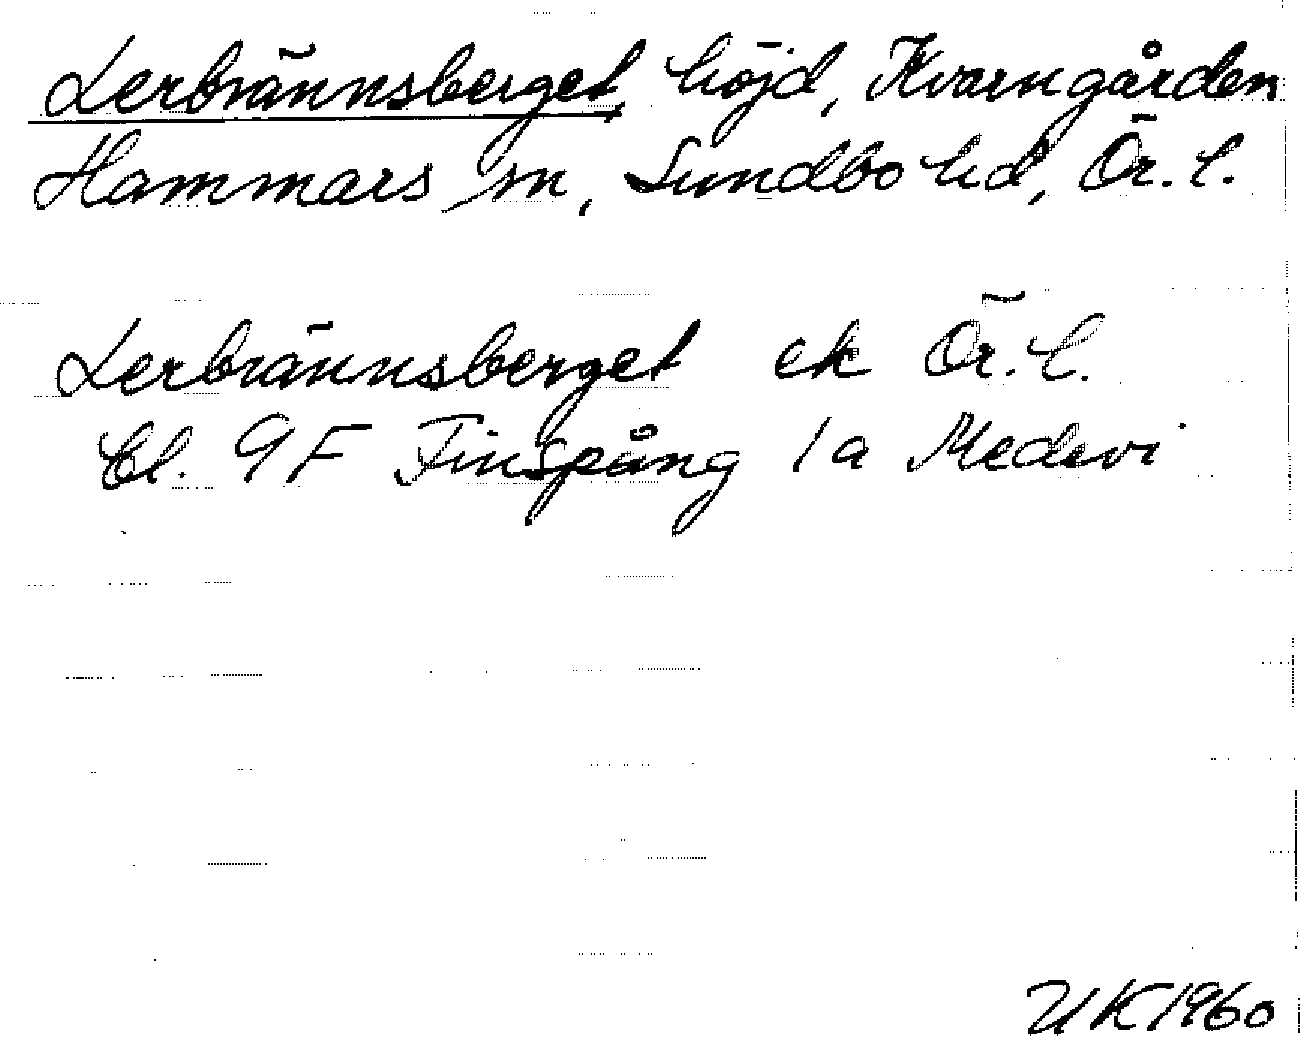 Lerbrännsberget, höjd, Kvarngården
Hammars sn, Sundbo hd, Ör. l.
Lerbrännsberget ek Ör. l.
bl. 9F Finspång 1a Medevi
UK 1960